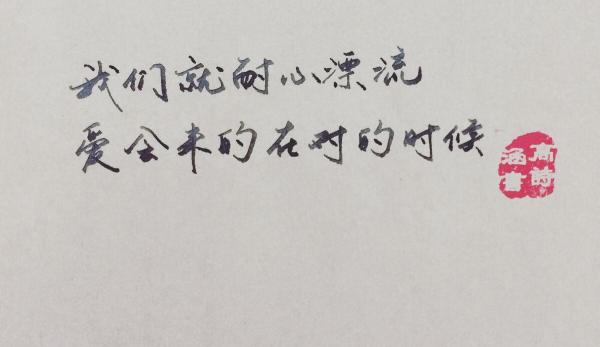 我们就耐心漂流
爱会来的在对的时候
高诗涵书